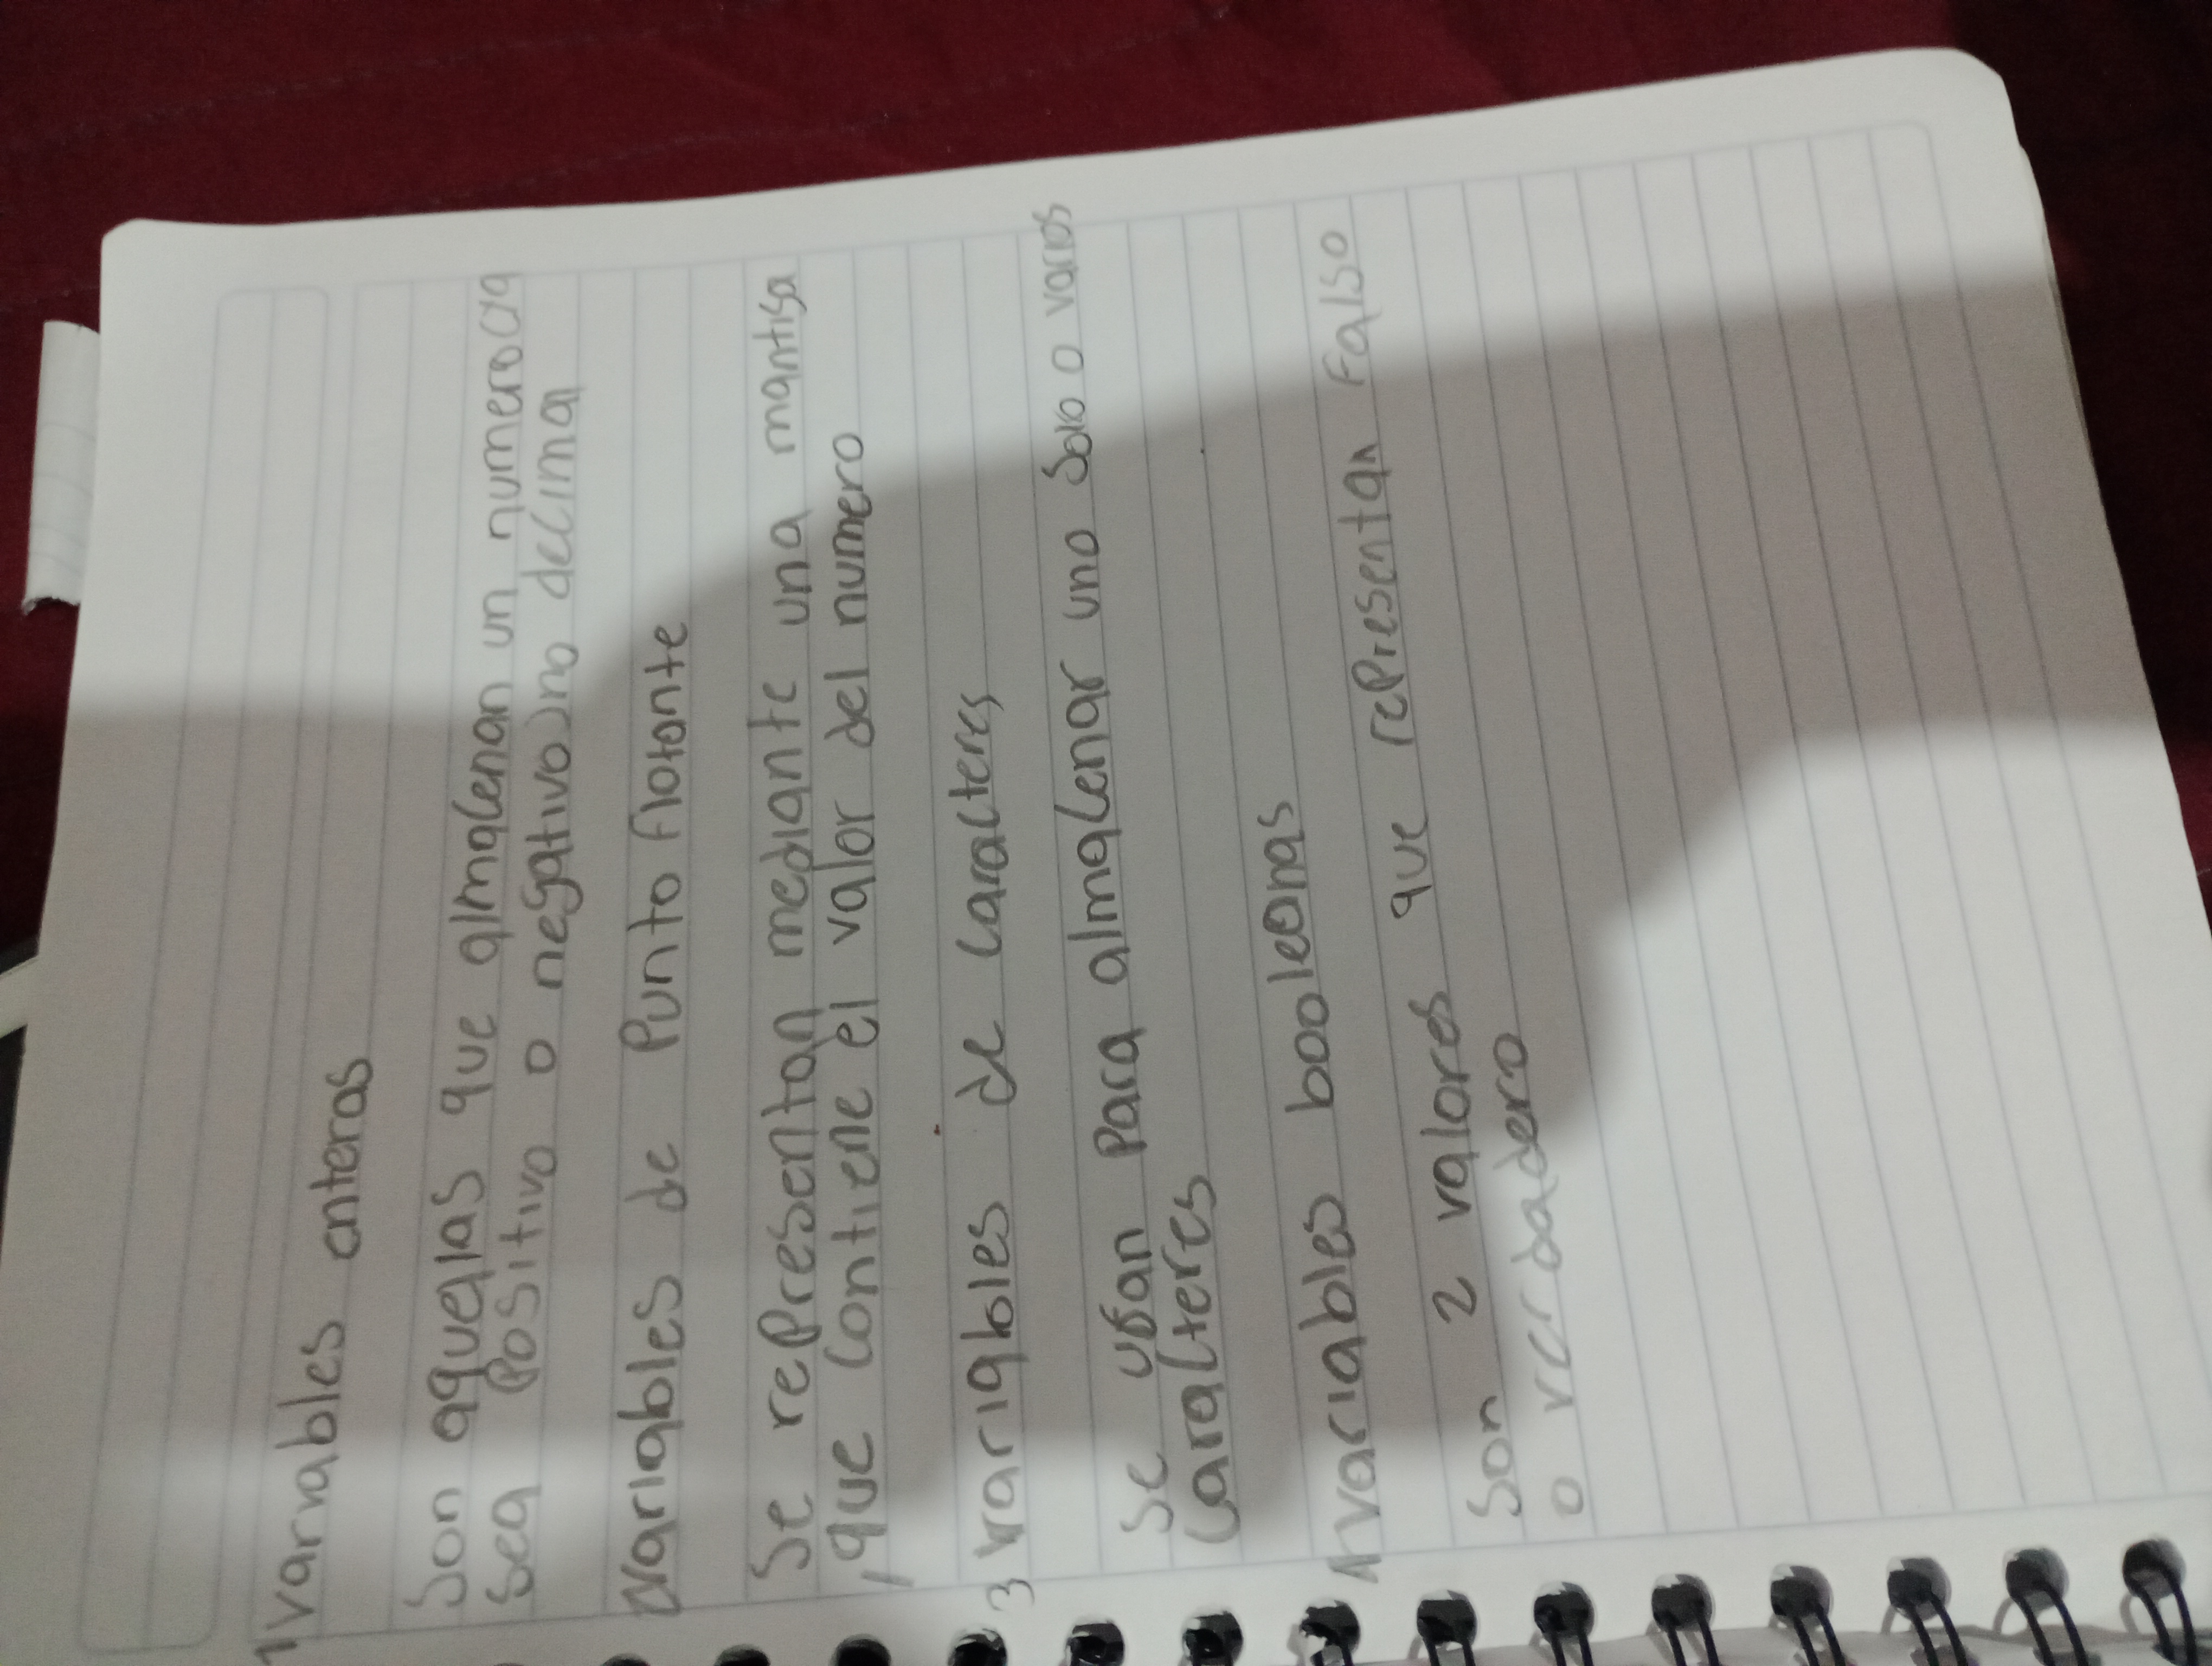 1 variables enteras
Son aquellas que almacenan un numero (ya
sea positivo o negativo) no decimal
2 variables de Punto flotante
Se representan mediante una mantisa
, que contiene el valor del numero
3 variables de caracteres
Se usan para almacenar uno solo o varios
caracteres
4 variables booleanas
Son 2 valores que representan falso
o verdadero